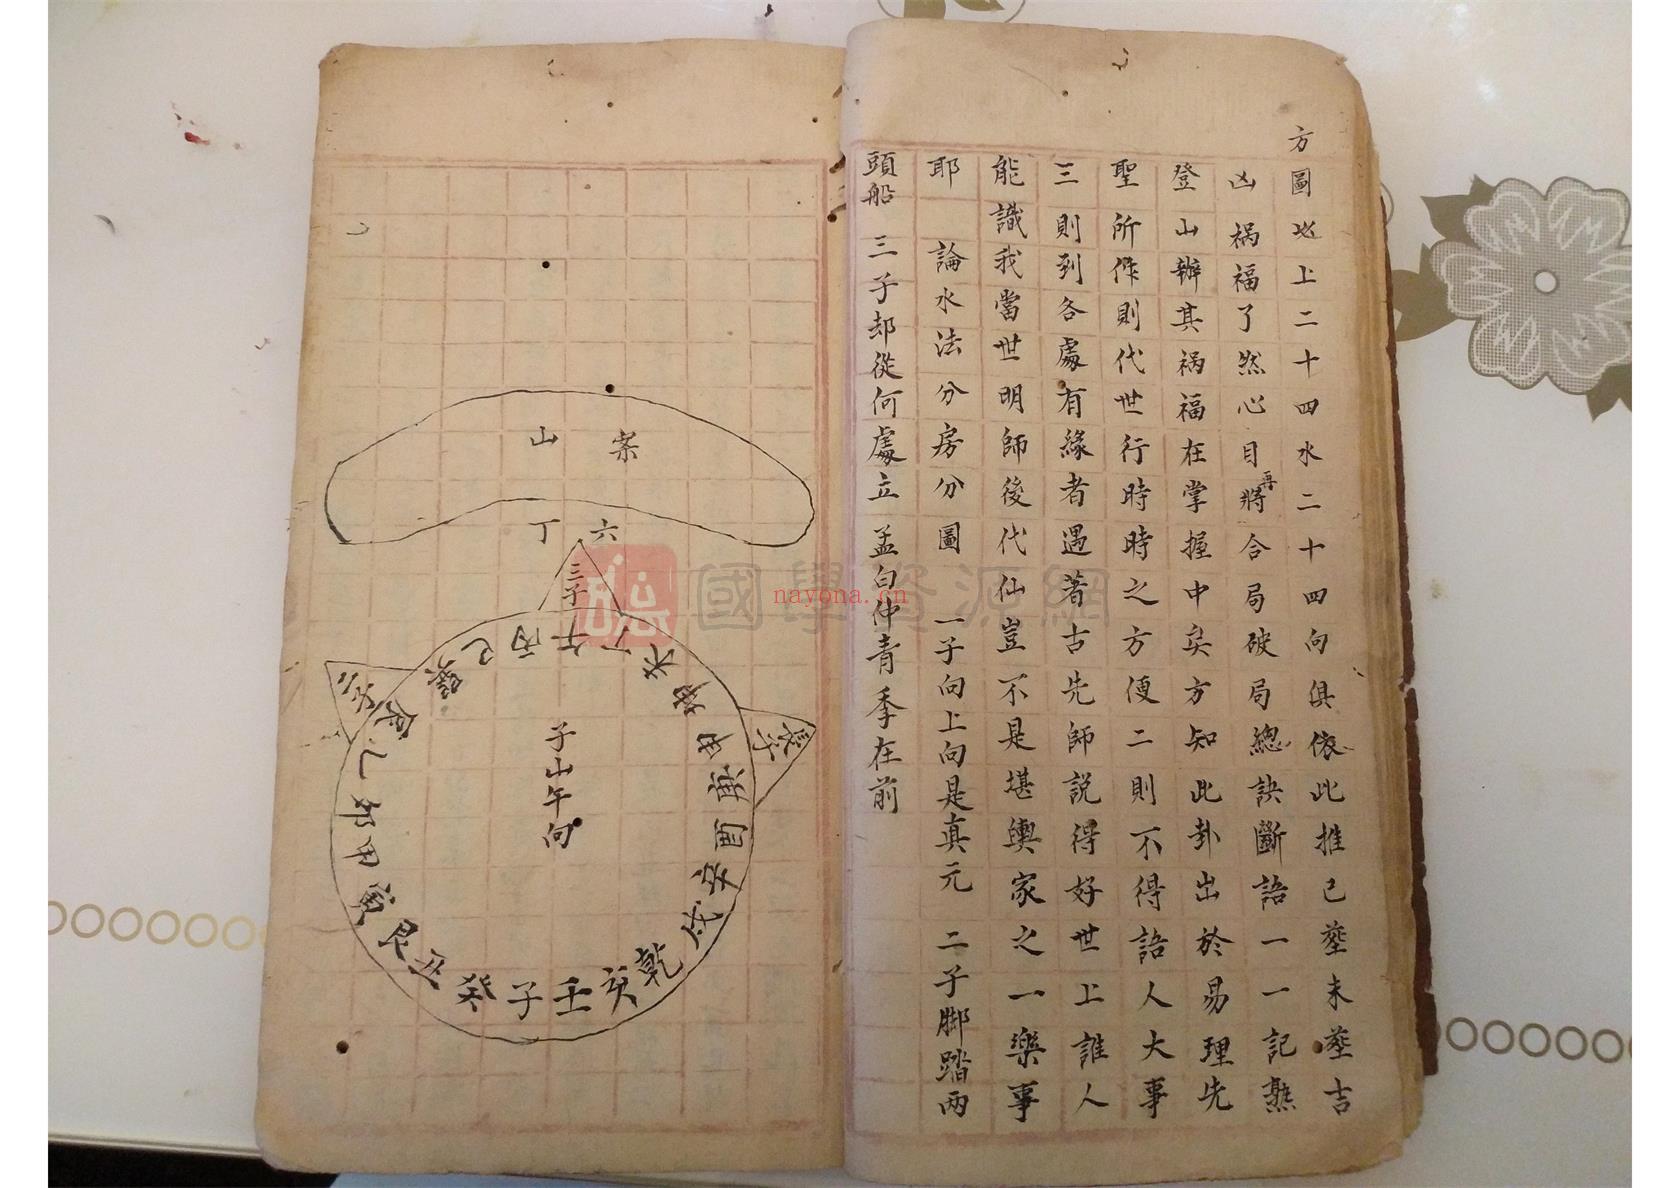 方圖地上二十四水二十四向俱依此推已塟未塟吉
凶祸福了然心目再將合局破局總訣斷語一一記熟
登山辦其祸福在掌握中矣方知此卦出於易理先
聖所作則代世行時時之方便二則不得語人大事
三則到各處有緣者遇著古先師説得好世上誰人
能識我當世明師後代仙豈不是堪輿家之一樂事
耶 論水法分房分圖 一子向上向是真元 二子脚踏兩
頭船 三子却從何處立 孟白仲青季在前
案山
六丁
三子
二子
長子
巽巳丙午丁未坤申庚酉辛戌乾亥壬子癸丑艮寅甲卯乙辰
子山午向
國學資源網
nayona.cn